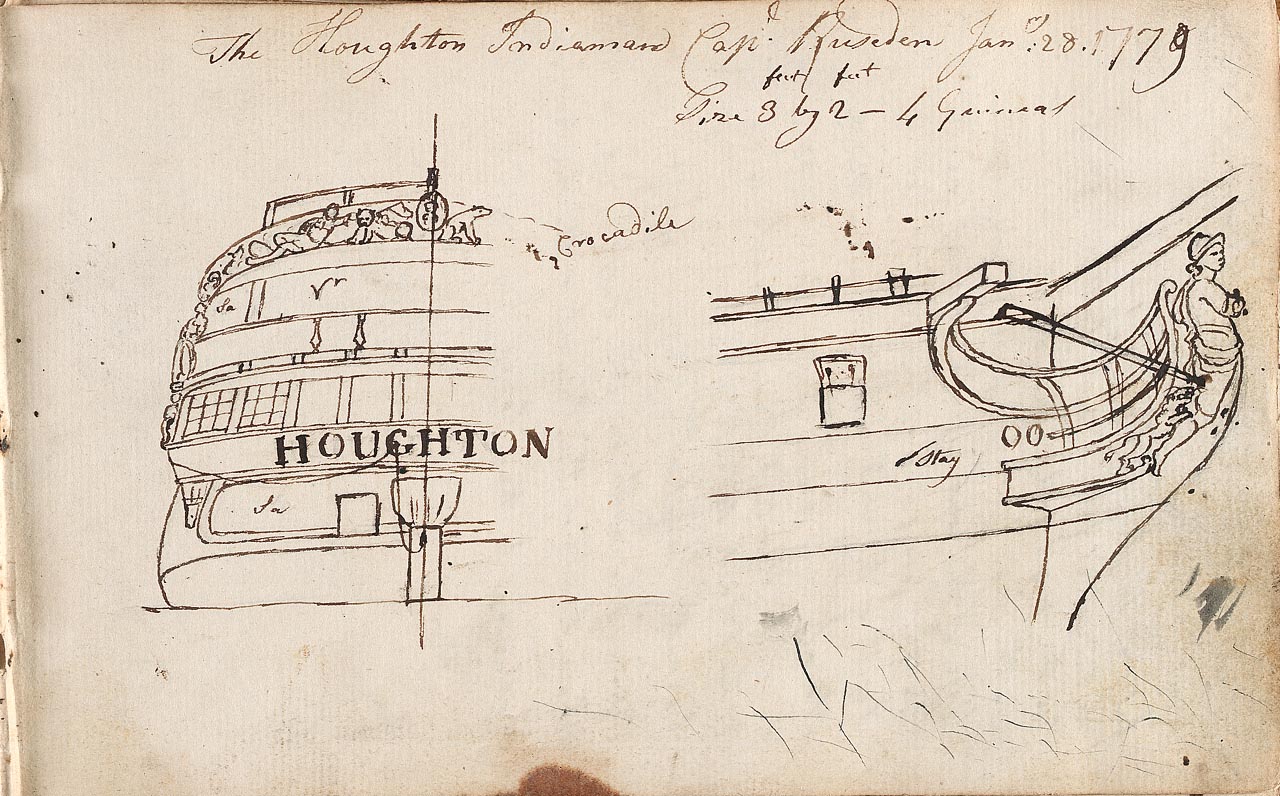 The Houghton Indiaman Capt. Ruseden Jany. 28. 1779
feet feet
Size 3 by 2 — 4 Guineas
Crocadile
Sa
Vn
HOUGHTON
Stay
Sa